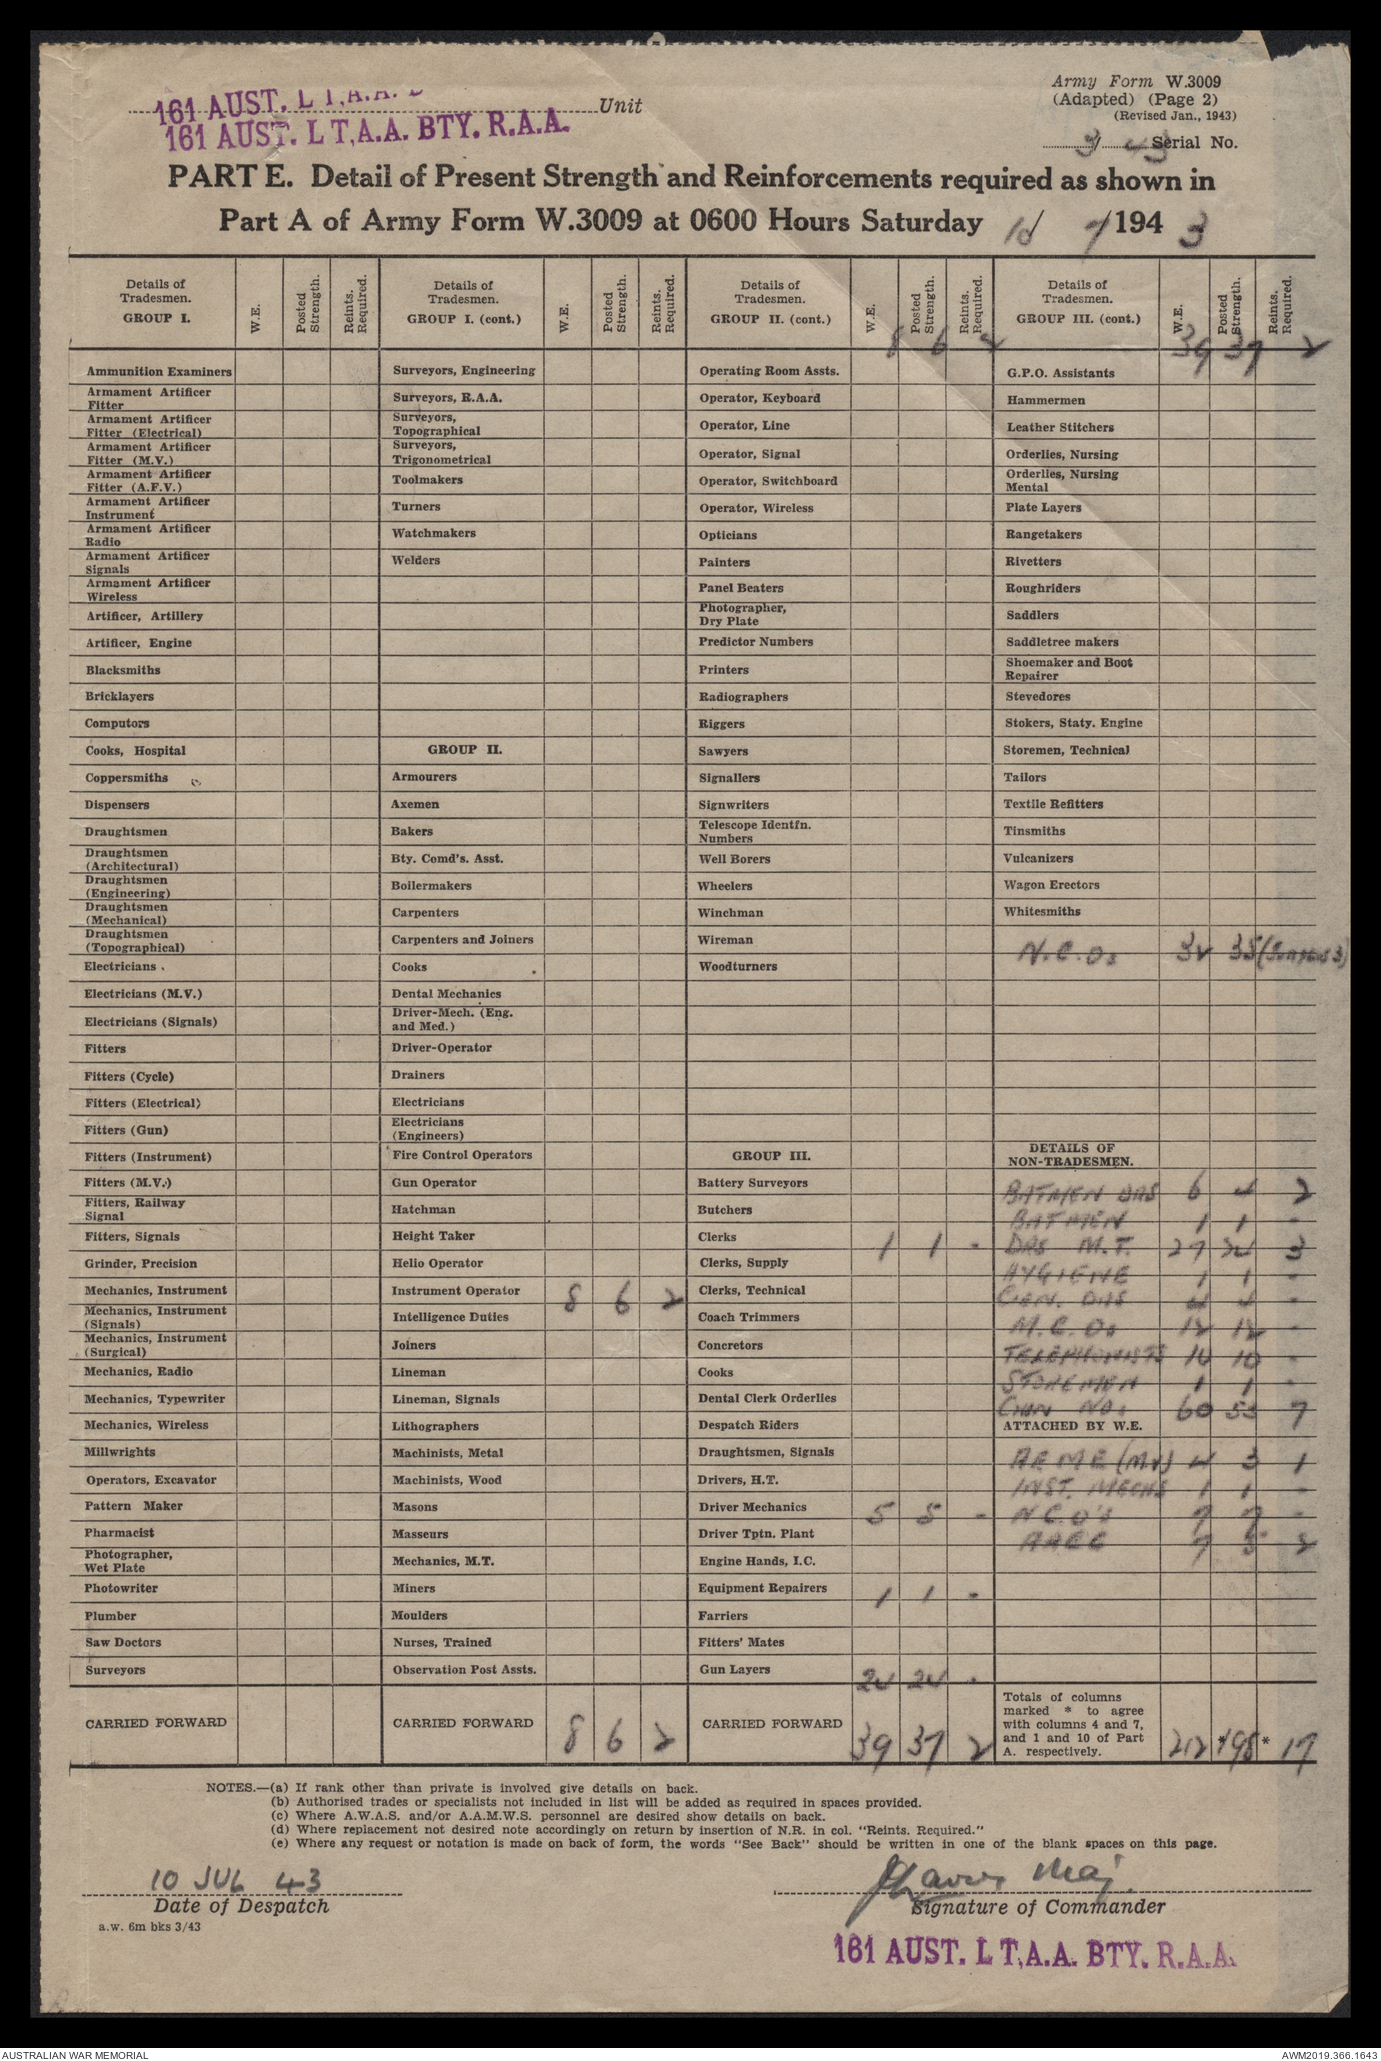 161 AUST. L T,A.A. B
161 AUST. L T,A.A. BTY. R.A.A.
Unit
Army Form W.3009
(Adapted) (Page 2)
(Revised Jan., 1943)
3/43 Serial No.
PART E. Detail of Present Strength and Reinforcements required as shown in
Part A of Army Form W.3009 at 0600 Hours Saturday 10/ 7/194 3
Details of Tradesmen. GROUP I.
W.E.
Posted Strength.
Reints. Required.
Ammunition Examiners
Armament Artificer Fitter
Armament Artificer Fitter (Electrical)
Armament Artificer Fitter (M.V.)
Armament Artificer Fitter (A.F.V.)
Armament Artificer Instrument
Armament Artificer Radio
Armament Artificer Signals
Armament Artificer Wireless
Artificer, Artillery
Artificer, Engine
Blacksmiths
Bricklayers
Computors
Cooks, Hospital
Coppersmiths
Dispensers
Draughtsmen
Draughtsmen (Architectural)
Draughtsmen (Engineering)
Draughtsmen (Mechanical)
Draughtsmen (Topographical)
Electricians
Electricians (M.V.)
Electricians (Signals)
Fitters
Fitters (Cycle)
Fitters (Electrical)
Fitters (Gun)
Fitters (Instrument)
Fitters (M.V.)
Fitters, Railway Signal
Fitters, Signals
Grinder, Precision
Mechanics, Instrument
Mechanics, Instrument (Signals)
Mechanics, Instrument (Surgical)
Mechanics, Radio
Mechanics, Typewriter
Mechanics, Wireless
Millwrights
Operators, Excavator
Pattern Maker
Pharmacist
Photographer, Wet Plate
Photowriter
Plumber
Saw Doctors
Surveyors
CARRIED FORWARD
Details of Tradesmen. GROUP I. (cont.)
W.E.
Posted Strength.
Reints. Required.
Surveyors, Engineering
Surveyors, R.A.A.
Surveyors, Topographical
Surveyors, Trigonometrical
Toolmakers
Turners
Watchmakers
Welders
GROUP II.
Armourers
Axemen
Bakers
Bty. Comd's. Asst.
Boilermakers
Carpenters
Carpenters and Joiners
Cooks
Dental Mechanics
Driver-Mech. (Eng. and Med.)
Driver-Operator
Drainers
Electricians
Electricians (Engineers)
Fire Control Operators
Gun Operator
Hatchman
Height Taker
Helio Operator
Instrument Operator 8 6 2
Intelligence Duties
Joiners
Lineman
Lineman, Signals
Lithographers
Machinists, Metal
Machinists, Wood
Masons
Masseurs
Mechanics, M.T.
Miners
Moulders
Nurses, Trained
Observation Post Assts.
CARRIED FORWARD 8 6 2
Details of Tradesmen. GROUP II. (cont.)
W.E.
Posted Strength.
Reints. Required.
8 6 2
Operating Room Assts.
Operator, Keyboard
Operator, Line
Operator, Signal
Operator, Switchboard
Operator, Wireless
Opticians
Painters
Panel Beaters
Photographer, Dry Plate
Predictor Numbers
Printers
Radiographers
Riggers
Sawyers
Signallers
Signwriters
Telescope Identfn. Numbers
Well Borers
Wheelers
Winchman
Wireman
Woodturners
GROUP III.
Battery Surveyors
Butchers
Clerks 1 1 -
Clerks, Supply
Clerks, Technical
Coach Trimmers
Concretors
Cooks
Dental Clerk Orderlies
Despatch Riders
Draughtsmen, Signals
Drivers, H.T.
Driver Mechanics 5 5 -
Driver Tptn. Plant
Engine Hands, I.C.
Equipment Repairers 1 1 -
Farriers
Fitters' Mates
Gun Layers 24 24 -
CARRIED FORWARD 39 37 2
Details of Tradesmen. GROUP III. (cont.)
W.E.
Posted Strength.
Reints. Required.
39 37 2
G.P.O. Assistants
Hammermen
Leather Stitchers
Orderlies, Nursing
Orderlies, Nursing Mental
Plate Layers
Rangetakers
Rivetters
Roughriders
Saddlers
Saddletree makers
Shoemaker and Boot Repairer
Stevedores
Stokers, Staty. Engine
Storemen, Technical
Tailors
Textile Refitters
Tinsmiths
Vulcanizers
Wagon Erectors
Whitesmiths
N.C.Os 32 35 (Surplus 3)
DETAILS OF NON-TRADESMEN.
BATMEN DRS 6 4 2
BATMEN 1 1 -
DRS M.T. 27 24 3
HYGIENE 1 1 -
GEN. DRS 4 4 -
M.C.Os 12 12 -
TELEPHONISTS 10 10 -
STOREMEN 1 1 -
GUN NOs 60 53 7
ATTACHED BY W.E.
AEME (MV) 4 3 1
INST. MECHS 1 1 -
N.C.O's 7 7 -
AACC 7 5 2
Totals of columns marked * to agree with columns 4 and 7, and 1 and 10 of Part A. respectively. 212 *198 * 17
NOTES.—(a) If rank other than private is involved give details on back.
(b) Authorised trades or specialists not included in list will be added as required in spaces provided.
(c) Where A.W.A.S. and/or A.A.M.W.S. personnel are desired show details on back.
(d) Where replacement not desired note accordingly on return by insertion of N.R. in col. "Reints. Required."
(e) Where any request or notation is made on back of form, the words "See Back" should be written in one of the blank spaces on this page.
10 JUL 43
Date of Despatch
a.w. 6m bks 3/43
Maj.
Signature of Commander
161 AUST. L T,A.A. BTY. R.A.A.
AUSTRALIAN WAR MEMORIAL
AWM2019.366.1643